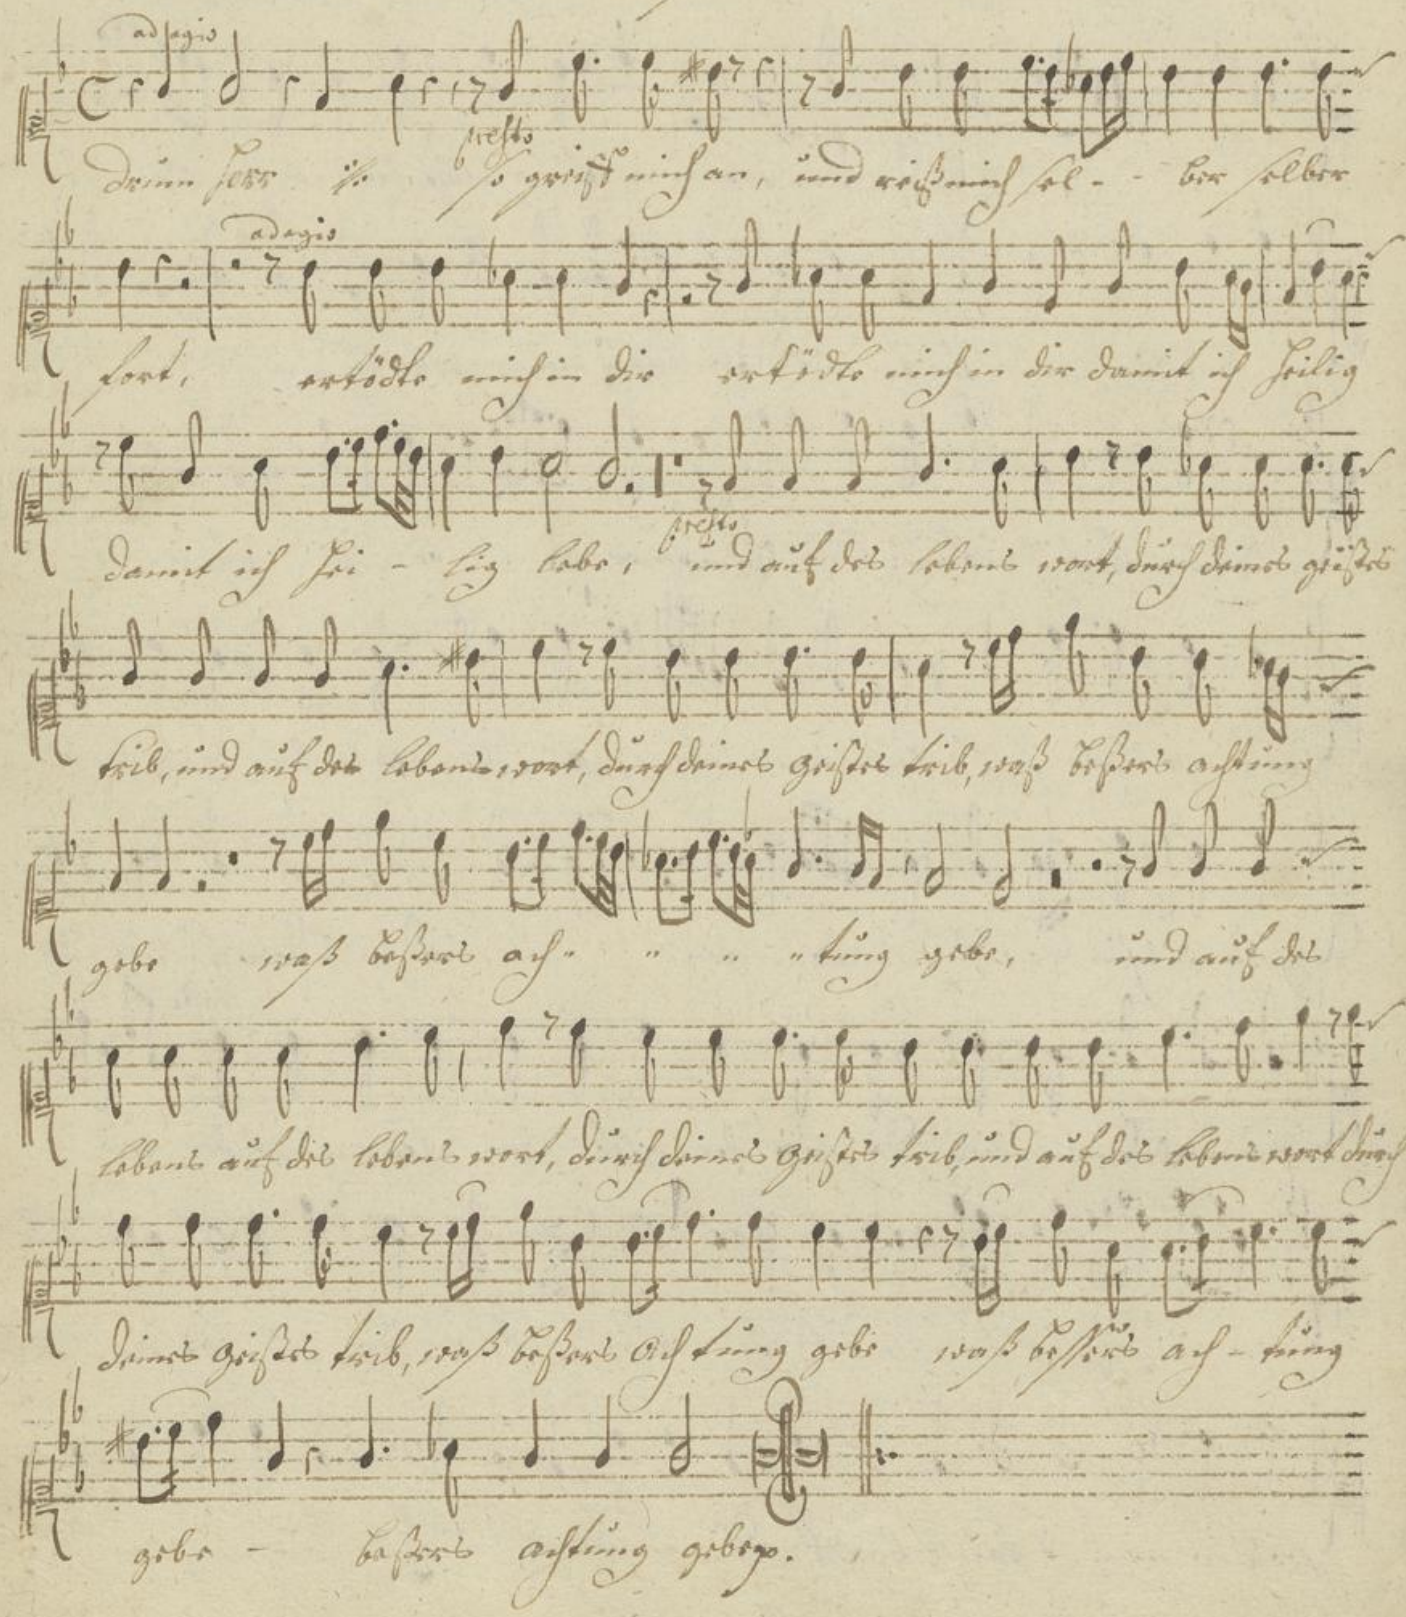 adagio
presto
Drum Herr so greiff mich an, und reiß mich sel - - ber selber
adagio
fort, ertödte mich in dir ertödte mich in dir damit ich heilig
presto
damit ich hei - lig lebe, und auf des lebens wort, durch deines geistes
trib, und auf des lebens wort, durch deines geistes trib, waß beßers achtung
gebe waß beßers ach " " " " tung gebe, und auf des
lebens auf des lebens wort, durch deines geistes trib, und auf des lebens wort durch
deines geistes trib, waß beßers achtung gebe waß bessers ach - tung
gebe - beßers achtung gebe